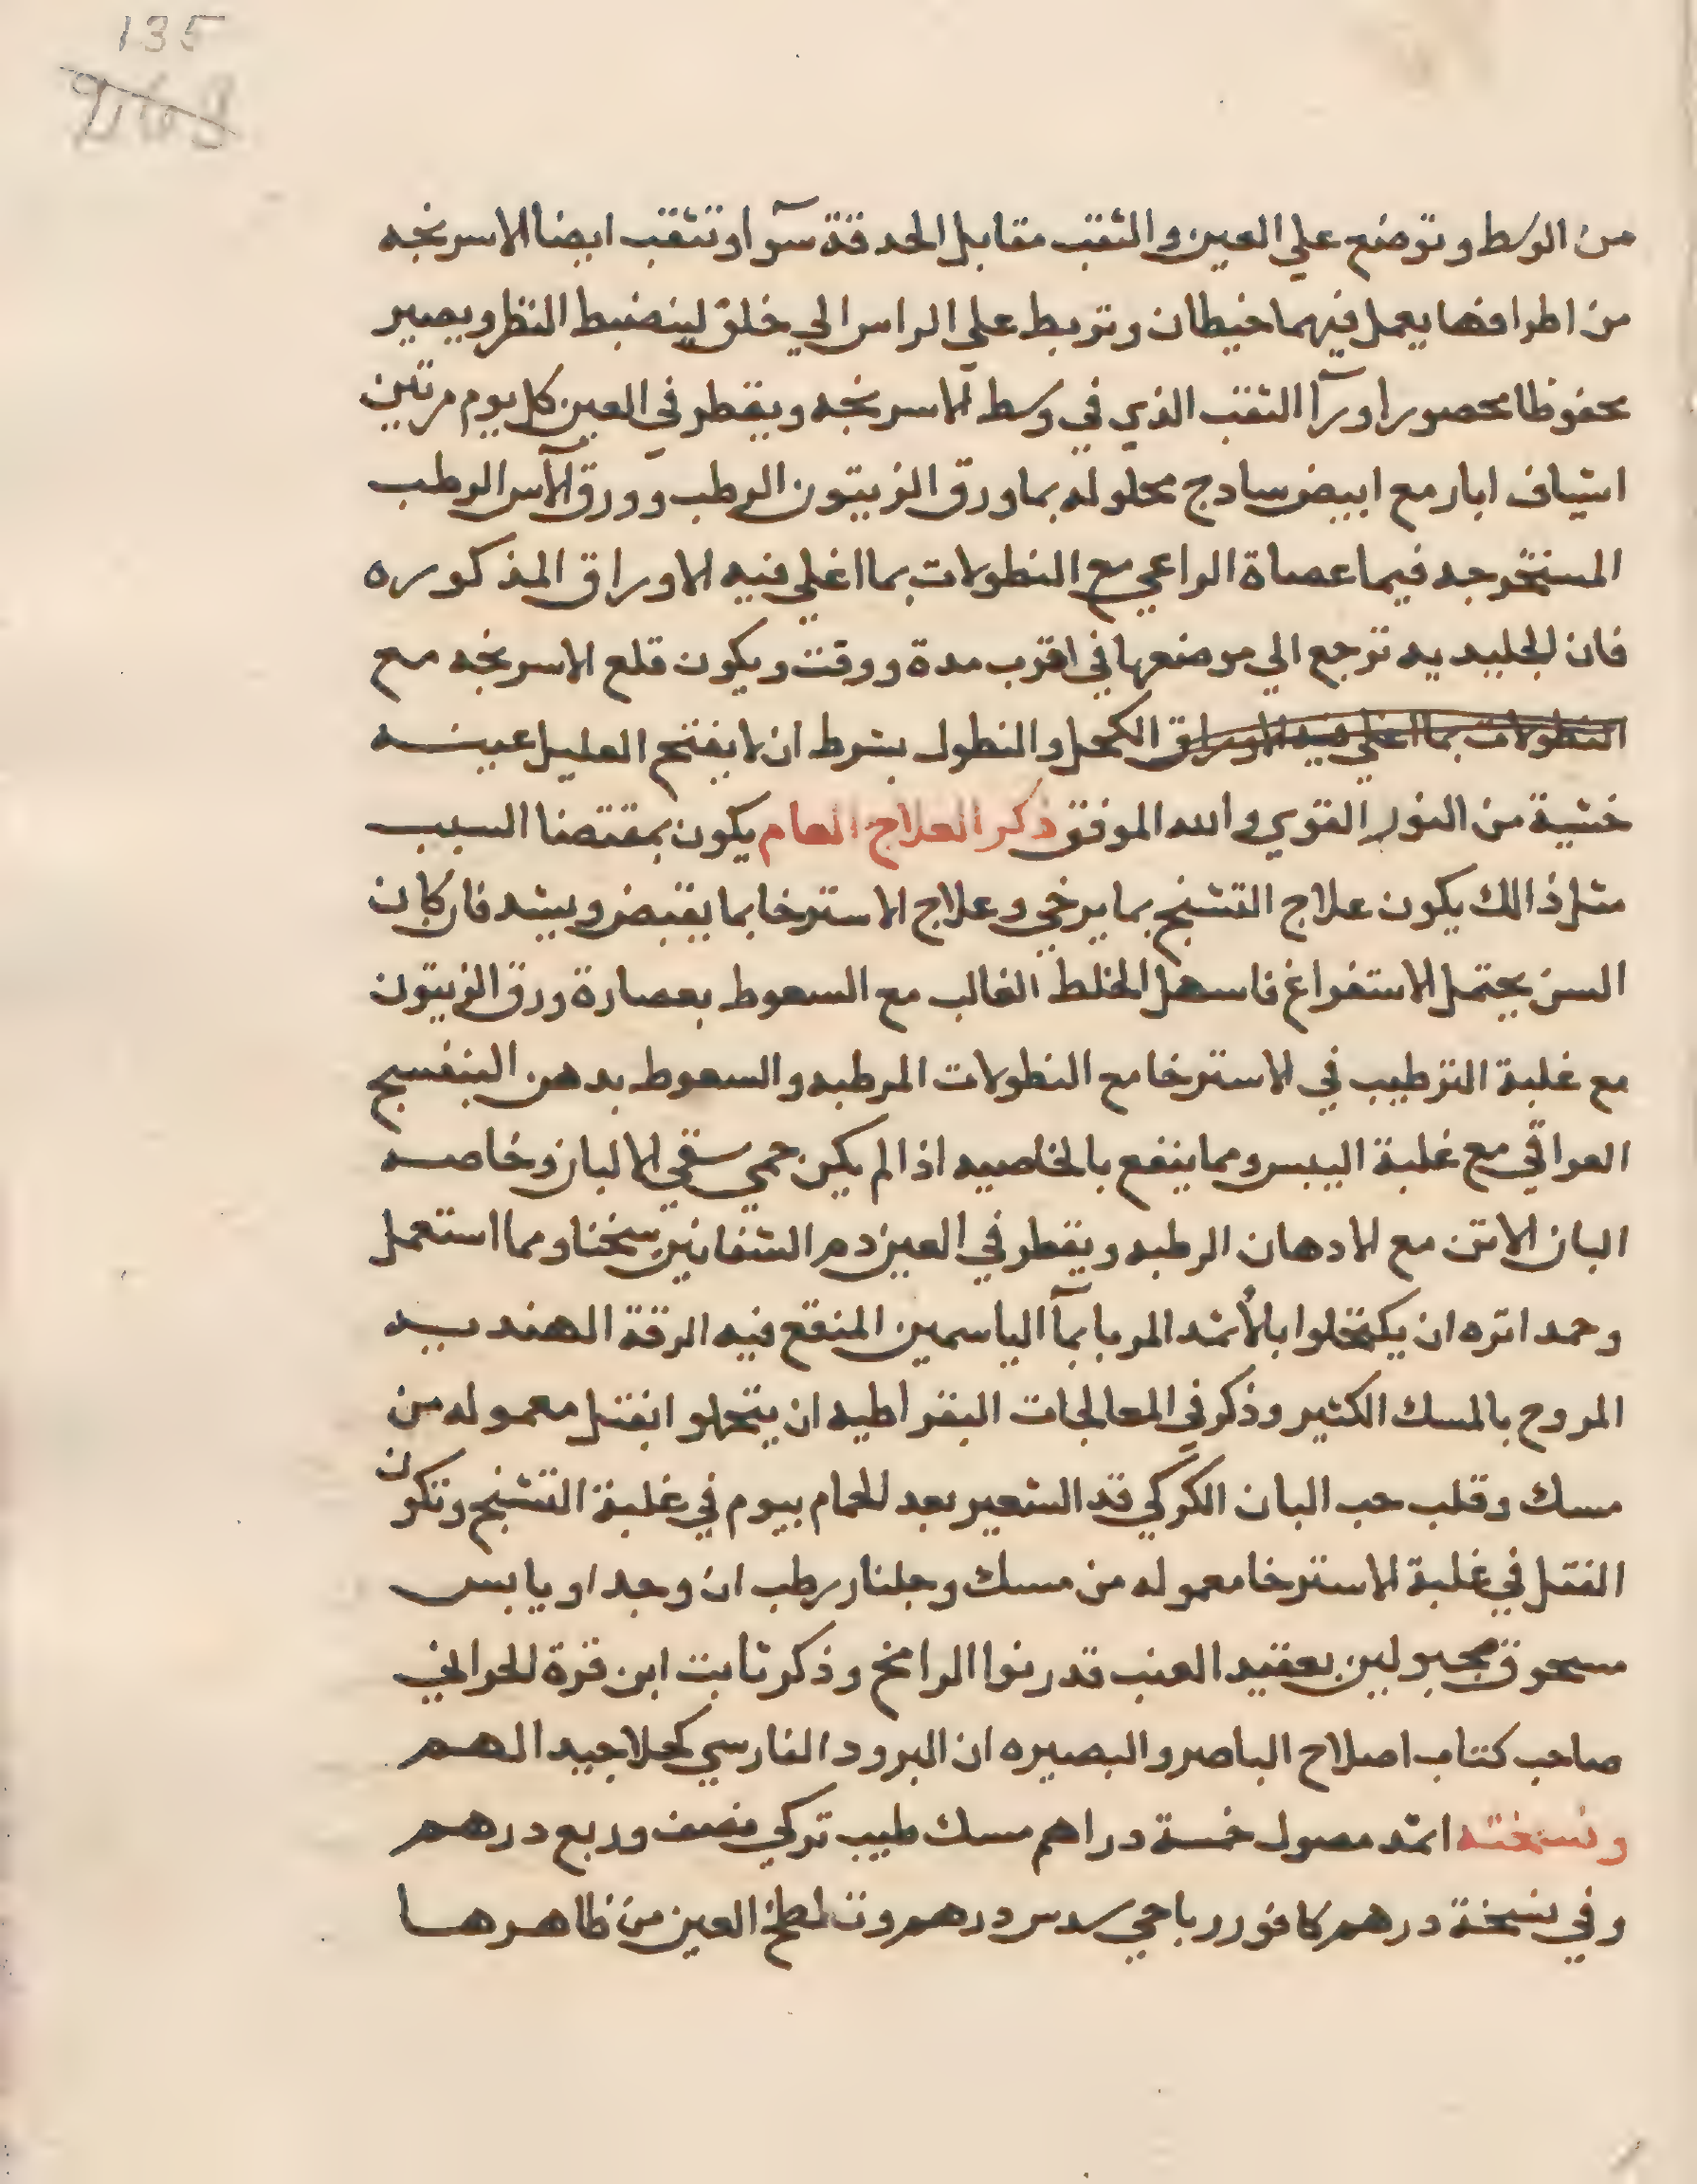 135
من الوسط وتوضع علي العين والثقب مقابل الحدقة سوآ وتثقب ايضا الاسرنجه
من اطرافها يعمل فيهما خيطان وتربط علي الراس الي خلق لينضبط النظر ويصير
محفوظا محصورا ورآ الثقب الذي في وسط الاسرنجه ويقطر في العين كل يوم مرتين
اشياف ابار مع ابيض سادج محلوله بما ورق الزيتون الرطب وورق الآس الرطب
المستخرجه فيما عصاة الراعي مع النطولات بما اغلي فيه الاوراق المذكوره
فان الجليديه ترجع الي موضعها في اقرب مدة ووقت ويكون قلع الاسرنجه مع
النطولات بما اغلي فيه الاوراق الكحل والنطول بشرط ان لا يفتح العليل عينه
خشية من النور القوي والله الموفق ذكر العلاج العام يكون بمقتضا السبب
مثل ذالك يكون علاج التشنج بما يرخي وعلاج الاسترخا بما يقبض ويشد فان كان
السن يحتمل الاستفراغ فاسهل الخلط الغالب مع السعوط بعصارة ورق الزيتون
مع غلبة الترطيب في الاسترخا مع النطولات المرطبه والسعوط بدهن البنفسج
العراقي مع غلبة اليبس ومما ينفع بالخاصيه اذا لم يكن حمي سقي الالبان وخاصه
البان الاتن مع الادهان الرطبه ويقطر في العين دم الشفانين سخنا ومما استعمل
وحمد اثره ان يكتحلوا بالأثمد المربا بمآ الياسمين المنقع فيه الرقة الهنديه
المروح بالمسك الكثير وذكر في المعالجات البقراطيه ان يتحملوا بفتل معموله من
مسك وقلب حب البان الكركي قد الشعير بعد الحمام بيوم في غلبة التشنج وتكون
الفتل في غلبة الاسترخا معموله من مسك وجلنار رطب ان وجد او يابس
مسحوق مجبولين بعقيد العنب قد رنوا الرامخ وذكر ثابت ابن قرة الحراني
صاحب كتاب اصلاح الباصر والبصيره ان البرود الفارسي كحلا جيد الهم
ونسخته اثمد مصول خمسة دراهم مسك طيب تركي نصف وربع درهم
وفي نسخة درهم كافور رباحي سدس درهم وتلطخ العين من ظاهرها